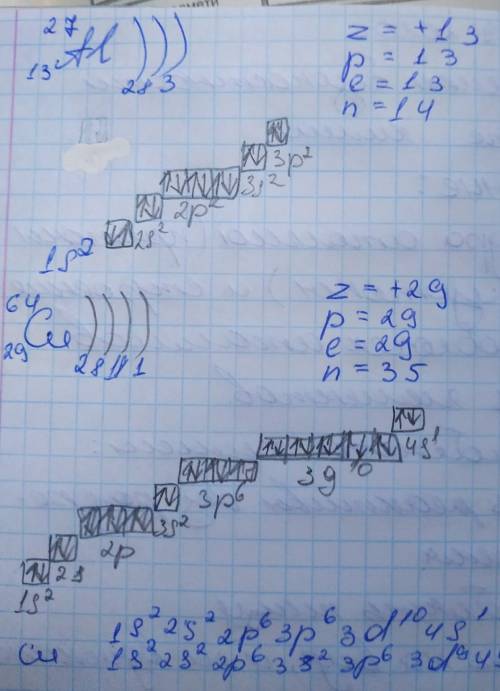 27
13 Al ) ) )
2 8 3
z = +13
p = 13
e = 13
n = 14
3p²
3s²
2p²
2s²
1s²
64
29 Cu ) ) ) )
2 8 18 1
z = +29
p = 29
e = 29
n = 35
4s¹
3g¹⁰
3p⁶
3s²
2p
2s
1s²
1s² 2s² 2p⁶ 3p⁶ 3d¹⁰ 4s¹
Cu 1s² 2s² 2p⁶ 3s² 3p⁶ 3d⁹ 4s